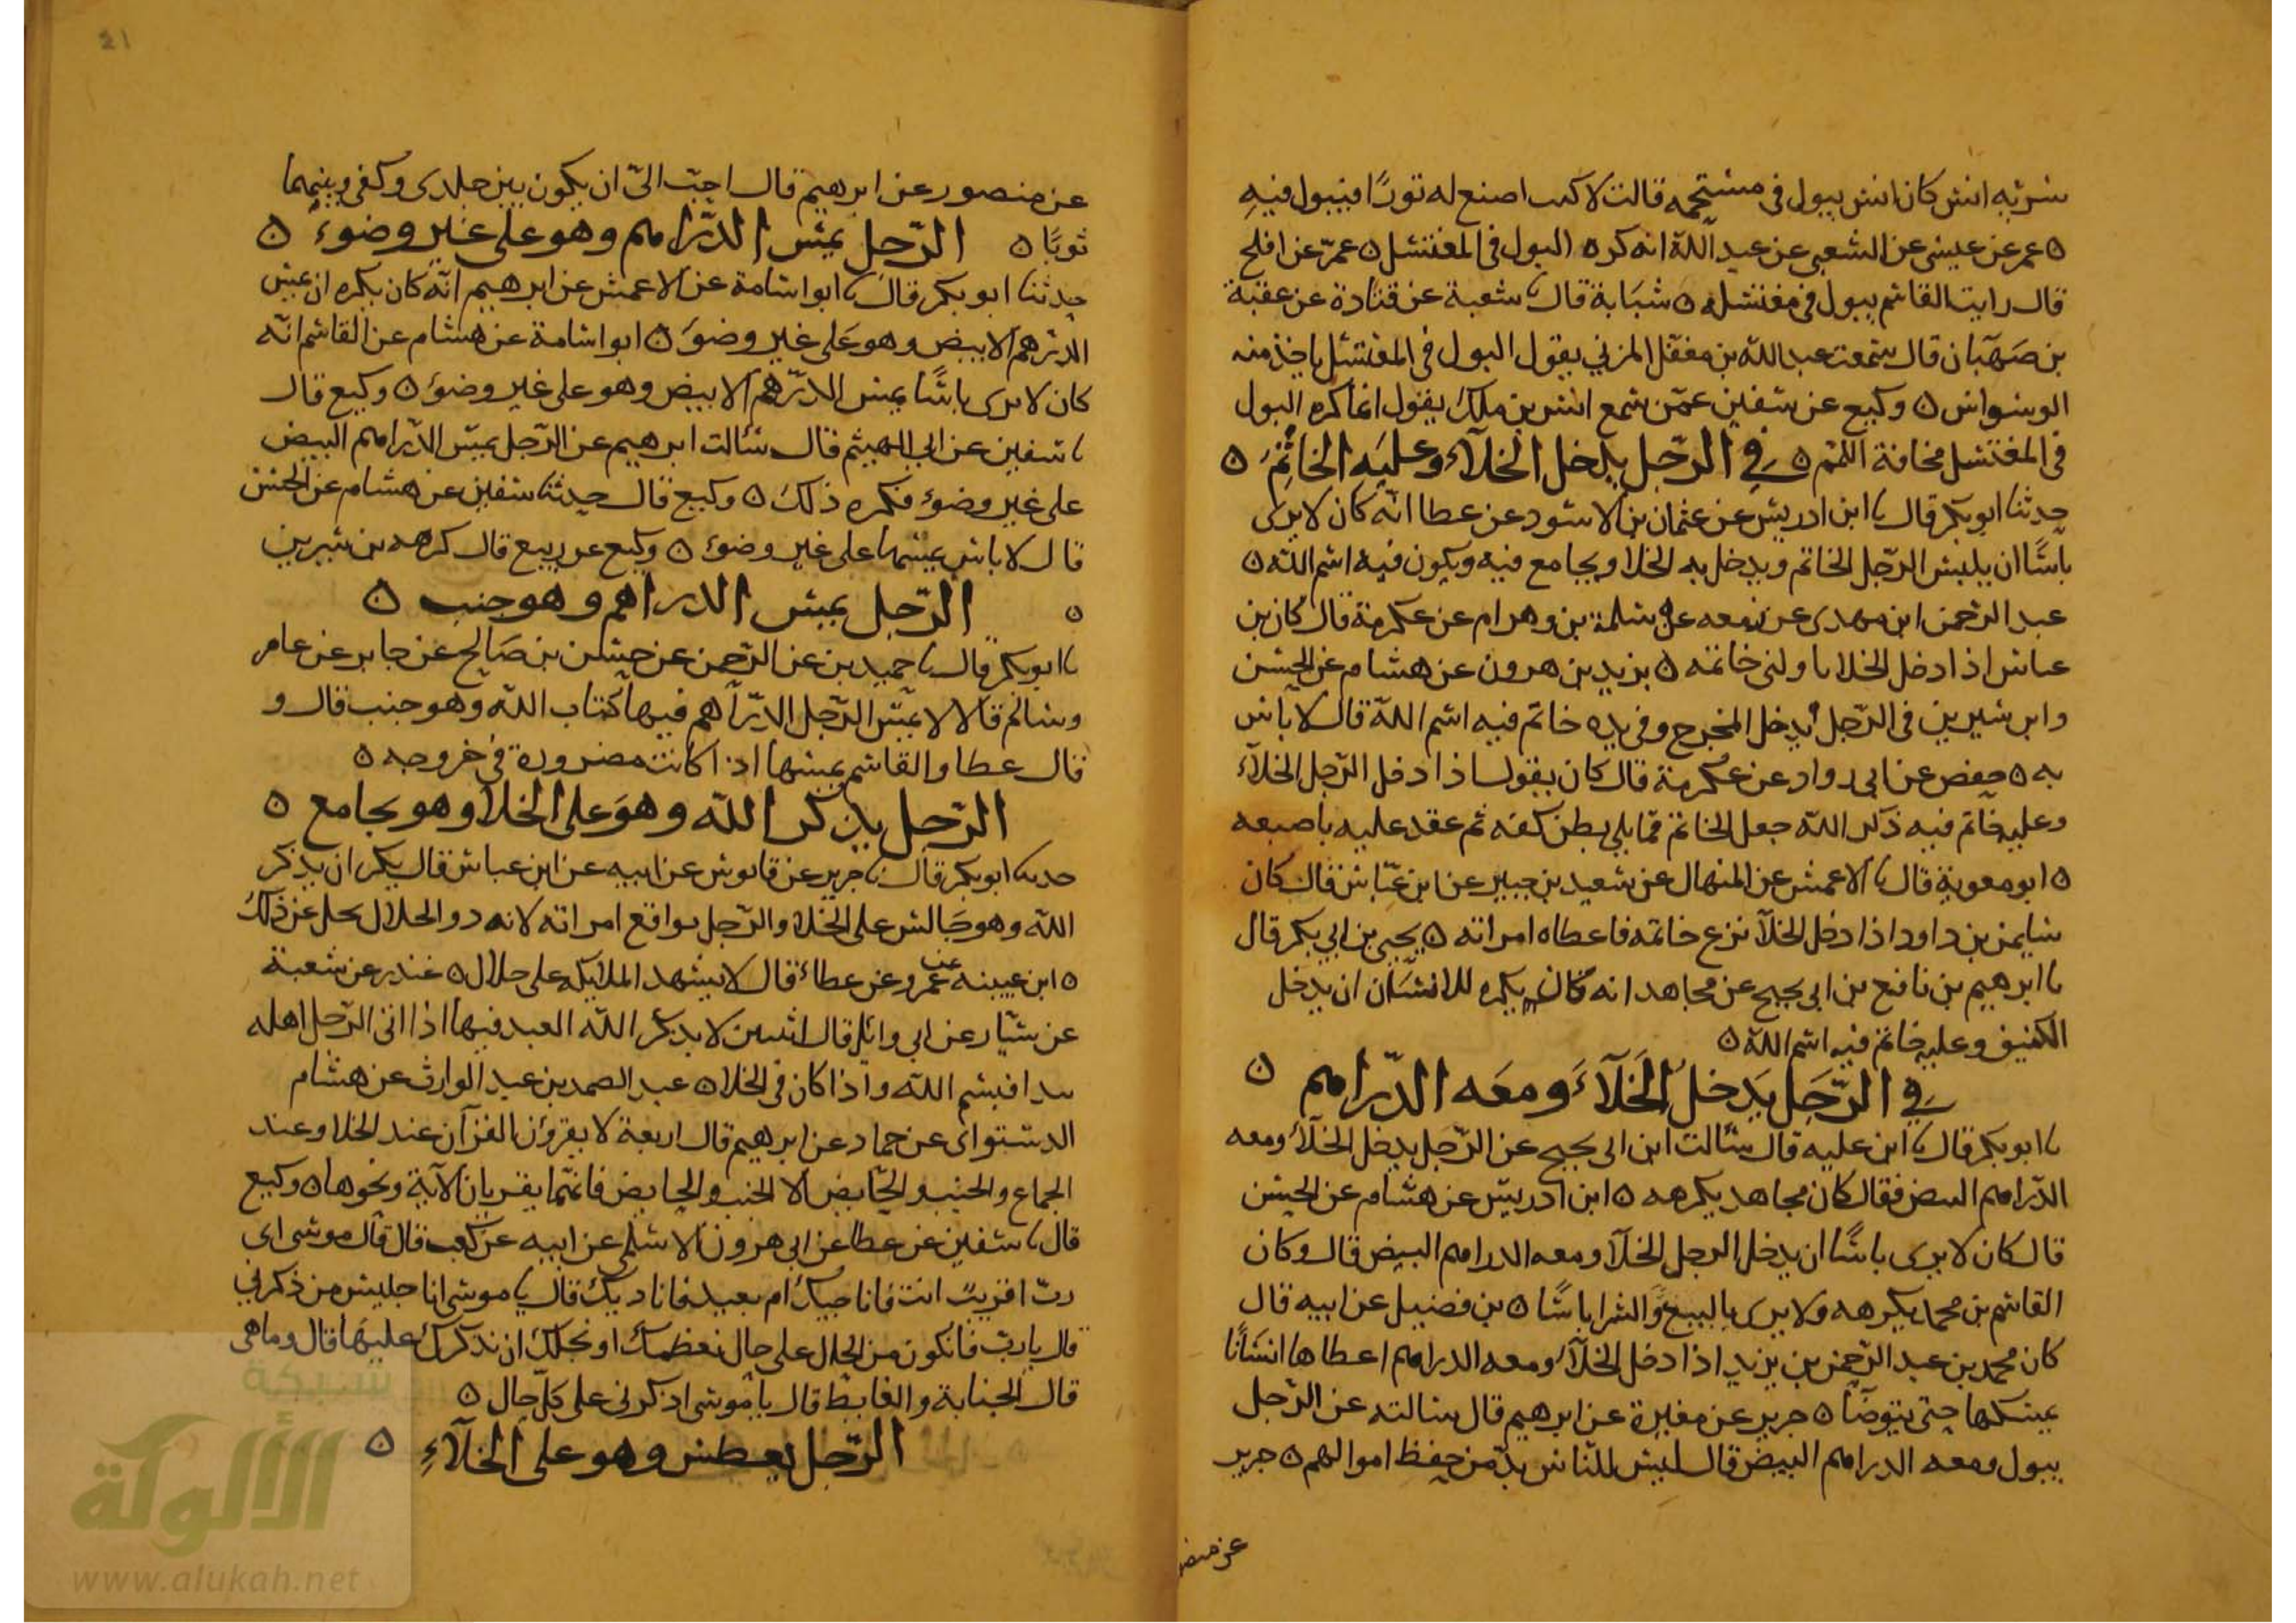 سرية انس كان انس يبول في مستحمه قالت لا كنت اصنع له تورًا فيبول فيه
٥ عمر عن عيسى عن الشعبي عن عبد اللّه انه كره البول في المغتسل ٥ عمر عن افلح
قال رايت القاسم يبول في مغتسله ٥ شبابة قال نا شعبة عن قتادة عن عقبة
بن صهبان قال سمعت عبد اللّه بن مغفل المزني يقول البول في المغتسل ياخذ منه
الوسواس ٥ وكيع عن سفين عمّن سمع انس بن ملك يقول انما كره البول
في المغتسل مخافة اللمم ٥ في الرّجل يدخل الخلآء وعليه الخاتم ٥
حدثنا ابو بكر قال نا ابن ادريس عن عثمان بن الاسود عن عطا انّه كان لا يرى
باسًا ان يلبس الرّجل الخاتم ويدخل به الخلا ويجامع فيه ويكون فيه اسم اللّه ٥
عبد الرّحمن ابن مهدى عن زمعه عن سلمة بن وهرام عن عكرمة قال كان بن
عباس اذا دخل الخلا ناولني خاتمه ٥ يزيد بن هرون عن هشام عن الحسن
وابن سيرين في الرّجل يدخل المخرج وفي يده خاتم فيه اسم اللّه قال لا باس
به ٥ حفص عن ابي رواد عن عكرمة قال كان يقول اذا دخل الرّجل الخلآء
وعليه خاتم فيه ذكر اللّه جعل الخاتم ممّا يلي بطن كفه ثم عقد عليه باصبعه
٥ ابو معوية قال نا الاعمش عن المنهال عن سعيد بن جبير عن ابن عبّاس قال كان
سليمن بن داود اذا دخل الخلآ نزع خاتمه فاعطاه امراته ٥ يحيى بن ابي بكر قال
نا ابرهيم بن نافع بن ابي نجيح عن مجاهد انه كان يكره للانسان ان يدخل
الكنيف وعليه خاتم فيه اسم اللّه ٥
في الرّجل يدخل الخلآء ومعه الدّراهم ٥
نا ابو بكر قال نا ابن عليه قال سالت ابن ابى نجيح عن الرّجل يدخل الخلآء ومعه
الدّراهم البيض فقال كان مجاهد يكرهه ٥ ابن ادريس عن هشام عن الحسن
قال كان لا يرى باسًا ان يدخل الرجل الخلآ ومعه الدراهم البيض قال وكان
القاسم بن محمد يكرهه ولا يرى بالبيع والشرا باسًا ٥ بن فضيل عن ابيه قال
كان محمد بن عبد الرّحمن بن يزيد اذا دخل الخلآء ومعه الدراهم اعطاها انسانًا
يمسكها حتى يتوضّا ٥ جرير عن مغيرة عن ابرهيم قال سالته عن الرّجل
يبول ومعه الدراهم البيض قال ليس للنّاس بدّ من حفظ اموالهم ٥ جرير
عن منصور
21
عن منصور عن ابرهيم قال احبّ الىّ ان يكون بين جلدى وكفي وبينهما
ثوبًا ٥ الرّجل يمسّ الدّراهم وهو على غير وضوء ٥
حدثنا ابو بكر قال نا ابو اسامة عن الاعمش عن ابرهيم انّه كان يكره ان يمسّ
الدّرهم الابيض وهو على غير وضوء ٥ ابو اسامة عن هشام عن القاسم انّه
كان لا يرى باسًا يمس الدّرهم الابيض وهو على غير وضوء ٥ وكيع قال
نا سفين عن ابي الهيثم قال سالت ابرهيم عن الرّجل يمسّ الدّراهم البيض
على غير وضوء فكره ذلك ٥ وكيع قال حدثنا سفين عن هشام عن الحسن
قال لا باس يمسّها على غير وضوء ٥ وكيع عن ربيع قال كرهه بن سيرين
٥ الرّجل يمس الدراهم وهو جنب ٥
نا ابو بكر قال نا حميد بن عن الرّحمن عن حسن بن صالح عن جابر عن عامر
وسالم قالا لا يمسّ الرّجل الدّراهم فيها كتاب اللّه وهو جنب قال و
قال عطا والقاسم يمسّها اذا كانت مصرورة في خروجه ٥
الرّجل يذكر اللّه وهو على الخلا وهو يجامع ٥
حدثنا ابو بكر قال نا جرير عن قابوس عن ابيه عن ابن عباس قال يكر ان يذكر
اللّه وهو جالس على الخلا والرّجل يواقع امراته لانه ذو الجلال يجل عن ذلك
٥ ابن عيينه عن عمرو عن عطاء قال لا يشهد الملايكه على حلال ٥ غندر عن شعبة
عن سيّار عن ابي وائل قال اثنين لا يذكر اللّه العبد فيها اذا اتى الرّجل اهله
يبدا فبسم اللّه واذا كان في الخلا ٥ عبد الصمد بن عبد الوارث عن هشام
الدستواى عن حماد عن ابرهيم قال اربعة لا يقرؤن القرآن عند الخلا وعند
الجماع والجنب والحايض الا الجنب والحايض فانّهما يقريان الآية ونحوها ٥ وكيع
قال نا سفين عن عطا عن ابى هرون الاسلمى عن ابيه عن كعب قال قال موسى اى
ربّ اقريب انت فاناجيك ام بعيد فاناديك قال يا موسى انا جليس من ذكرني
قال يا ربّ فانكون من الحال على حال نعظمك او نجلّك ان نذكرك عليها قال وما هى
قال الجنابة والغايط قال يا موسى اذكرنى على كلّ حال ٥
الرّجل يعطس وهو على الخلآء ٥
شبكة
الألوكة
www.alukah.net